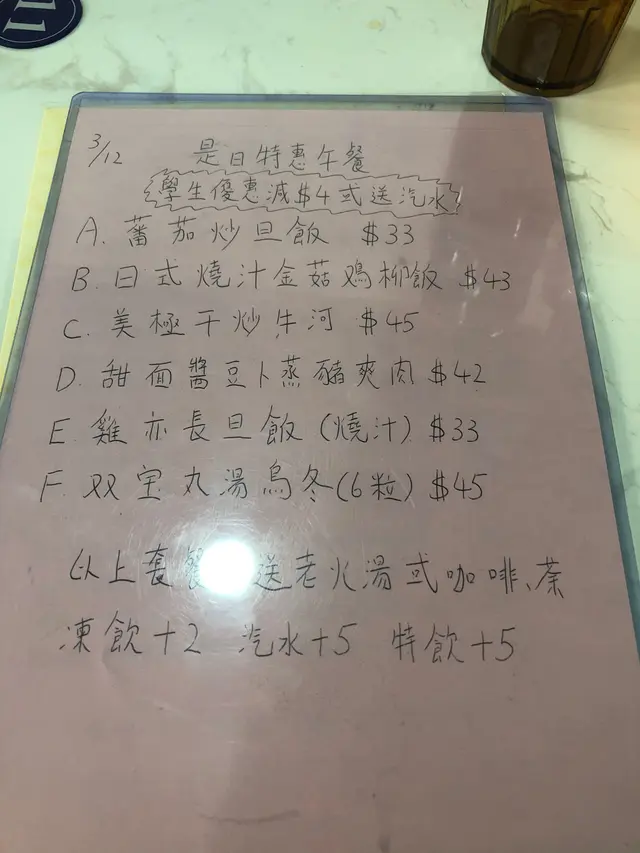 3/12
是日特惠午餐
學生優惠減$4或送汽水
A. 蕃茄炒旦飯 $33
B. 日式燒汁金菇鳮柳飯 $43
C. 美極干炒牛河 $45
D. 甜面醬豆卜蒸豬爽肉 $42
E. 雞亦長旦飯(燒汁) $33
F. 双宝丸湯烏冬(6粒) $45
以上套餐 送老火湯或咖啡、茶
凍飲+2 汽水+5 特飲+5